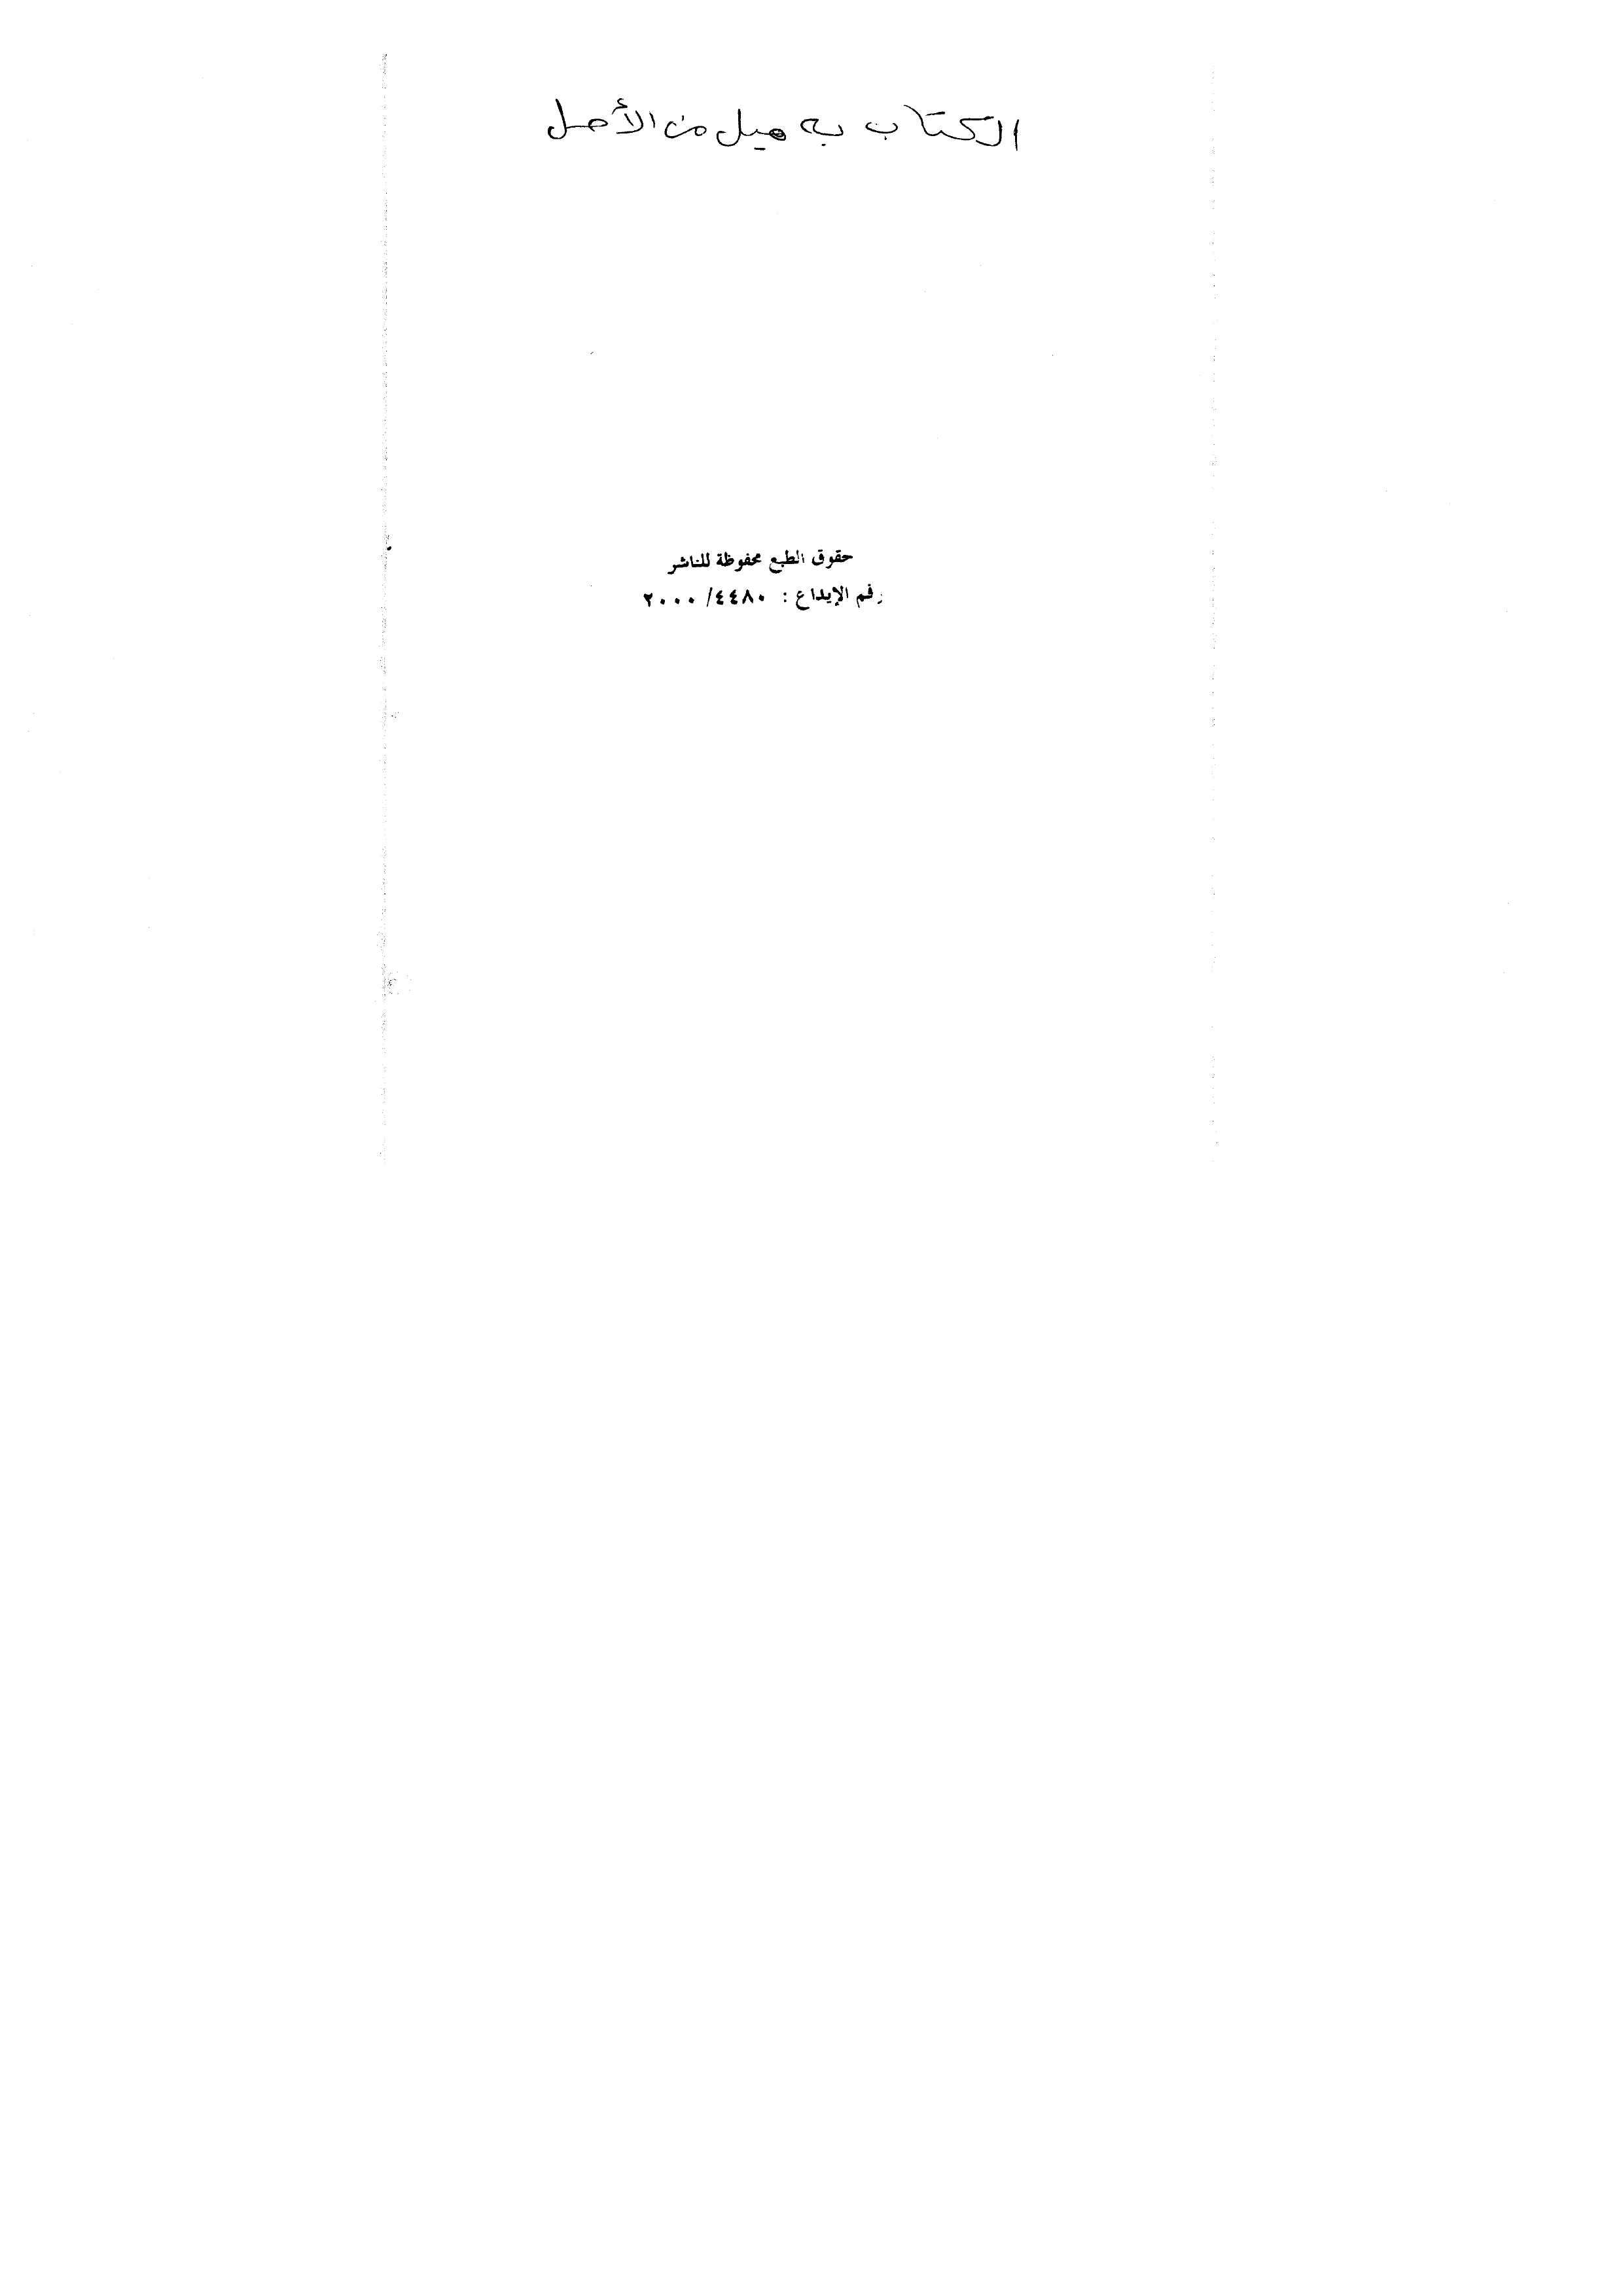 الكتاب به ميل من الأصل
حقوق الطبع محفوظة للناشر
رقم الإيداع : ٤٤٨٠/ ٢٠٠٠